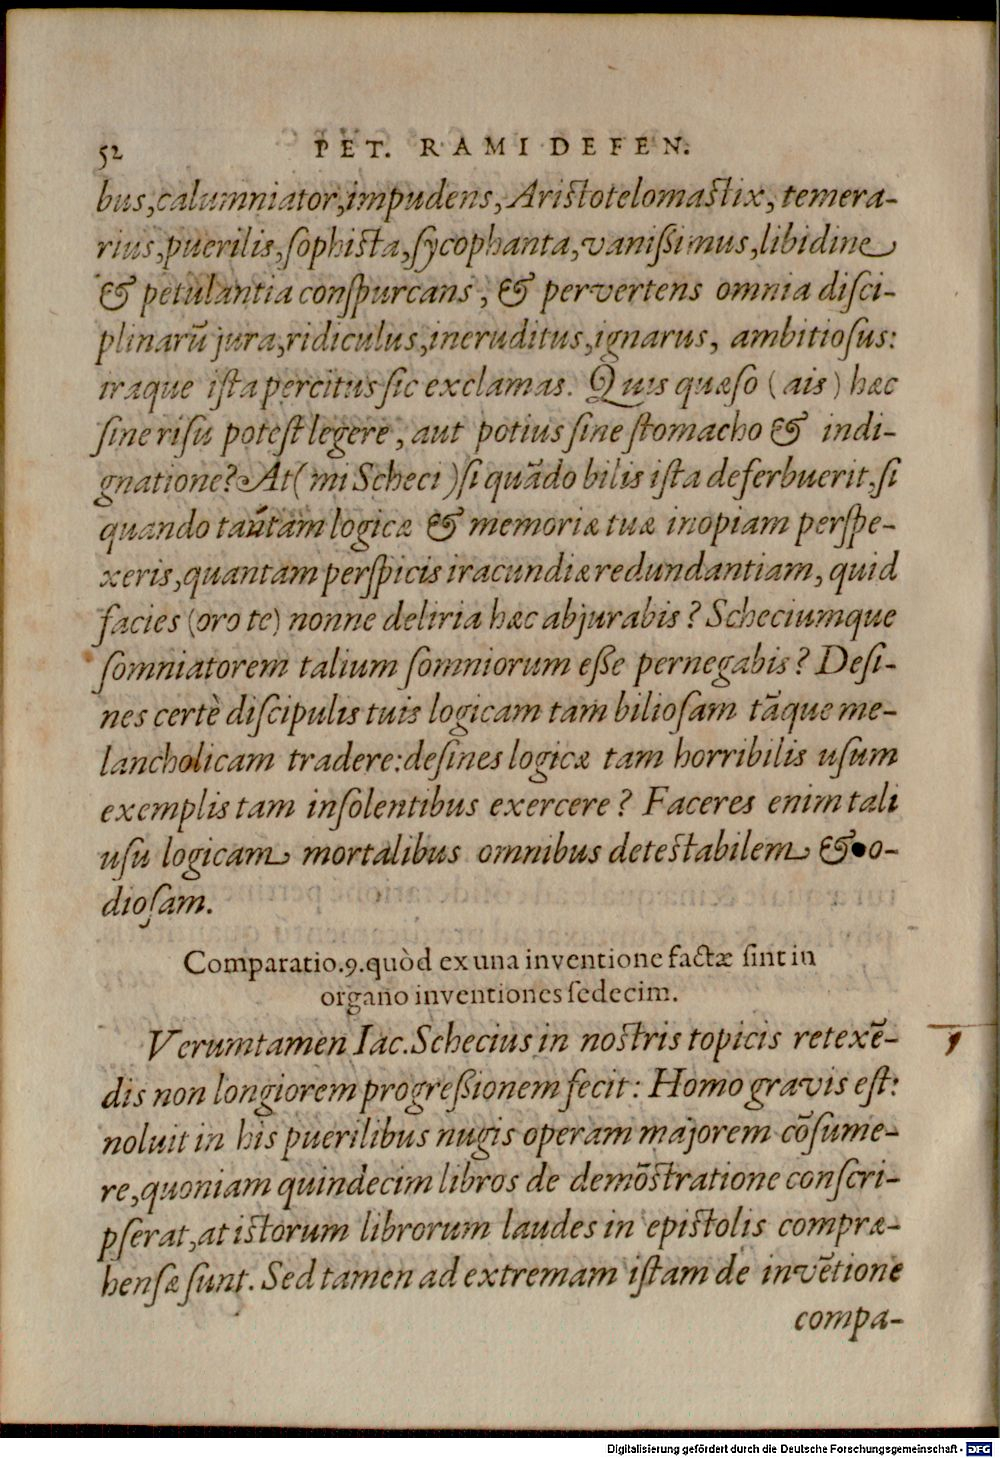 52 PET. RAMI DEFEN.
bus, calumniator, impudens, Aristotelomastix, temera-
rius, puerilis, sophista, sycophanta, vanissimus, libidine
& petulantia conspurcans, & pervertens omnia disci-
plinarũ jura, ridiculus, ineruditus, ignarus, ambitiosus:
iraque ista percitus sic exclamas. Quis quæso (ais) hæc
sine risu potest legere, aut potius sine stomacho & indi-
gnatione? At (mi Scheci) si quãdo bilis ista deferbuerit, si
quando tantam logicæ & memoriæ tuæ inopiam perspe-
xeris, quantam perspicis iracundiæ redundantiam, quid
facies (oro te) nonne deliria hæc abjurabis? Scheciumque
somniatorem talium somniorum esse pernegabis? Desi-
nes certè discipulis tuis logicam tam biliosam tãque me-
lancholicam tradere: desines logicæ tam horribilis usum
exemplis tam insolentibus exercere? Faceres enim tali
usu logicam mortalibus omnibus detestabilem & o-
diosam.
Comparatio. 9. quòd ex una inventione factæ sint in
organo inventiones sedecim.
Verumtamen Iac. Schecius in nostris topicis retexẽ-
dis non longiorem progressionem fecit: Homo gravis est:
noluit in his puerilibus nugis operam majorem cõsume-
re, quoniam quindecim libros de demõstratione conscri-
pserat, at istorum librorum laudes in epistolis compræ-
hensæ sunt. Sed tamen ad extremam istam de invẽtione
compa-
Digitalisierung gefördert durch die Deutsche Forschungsgemeinschaft - DFG